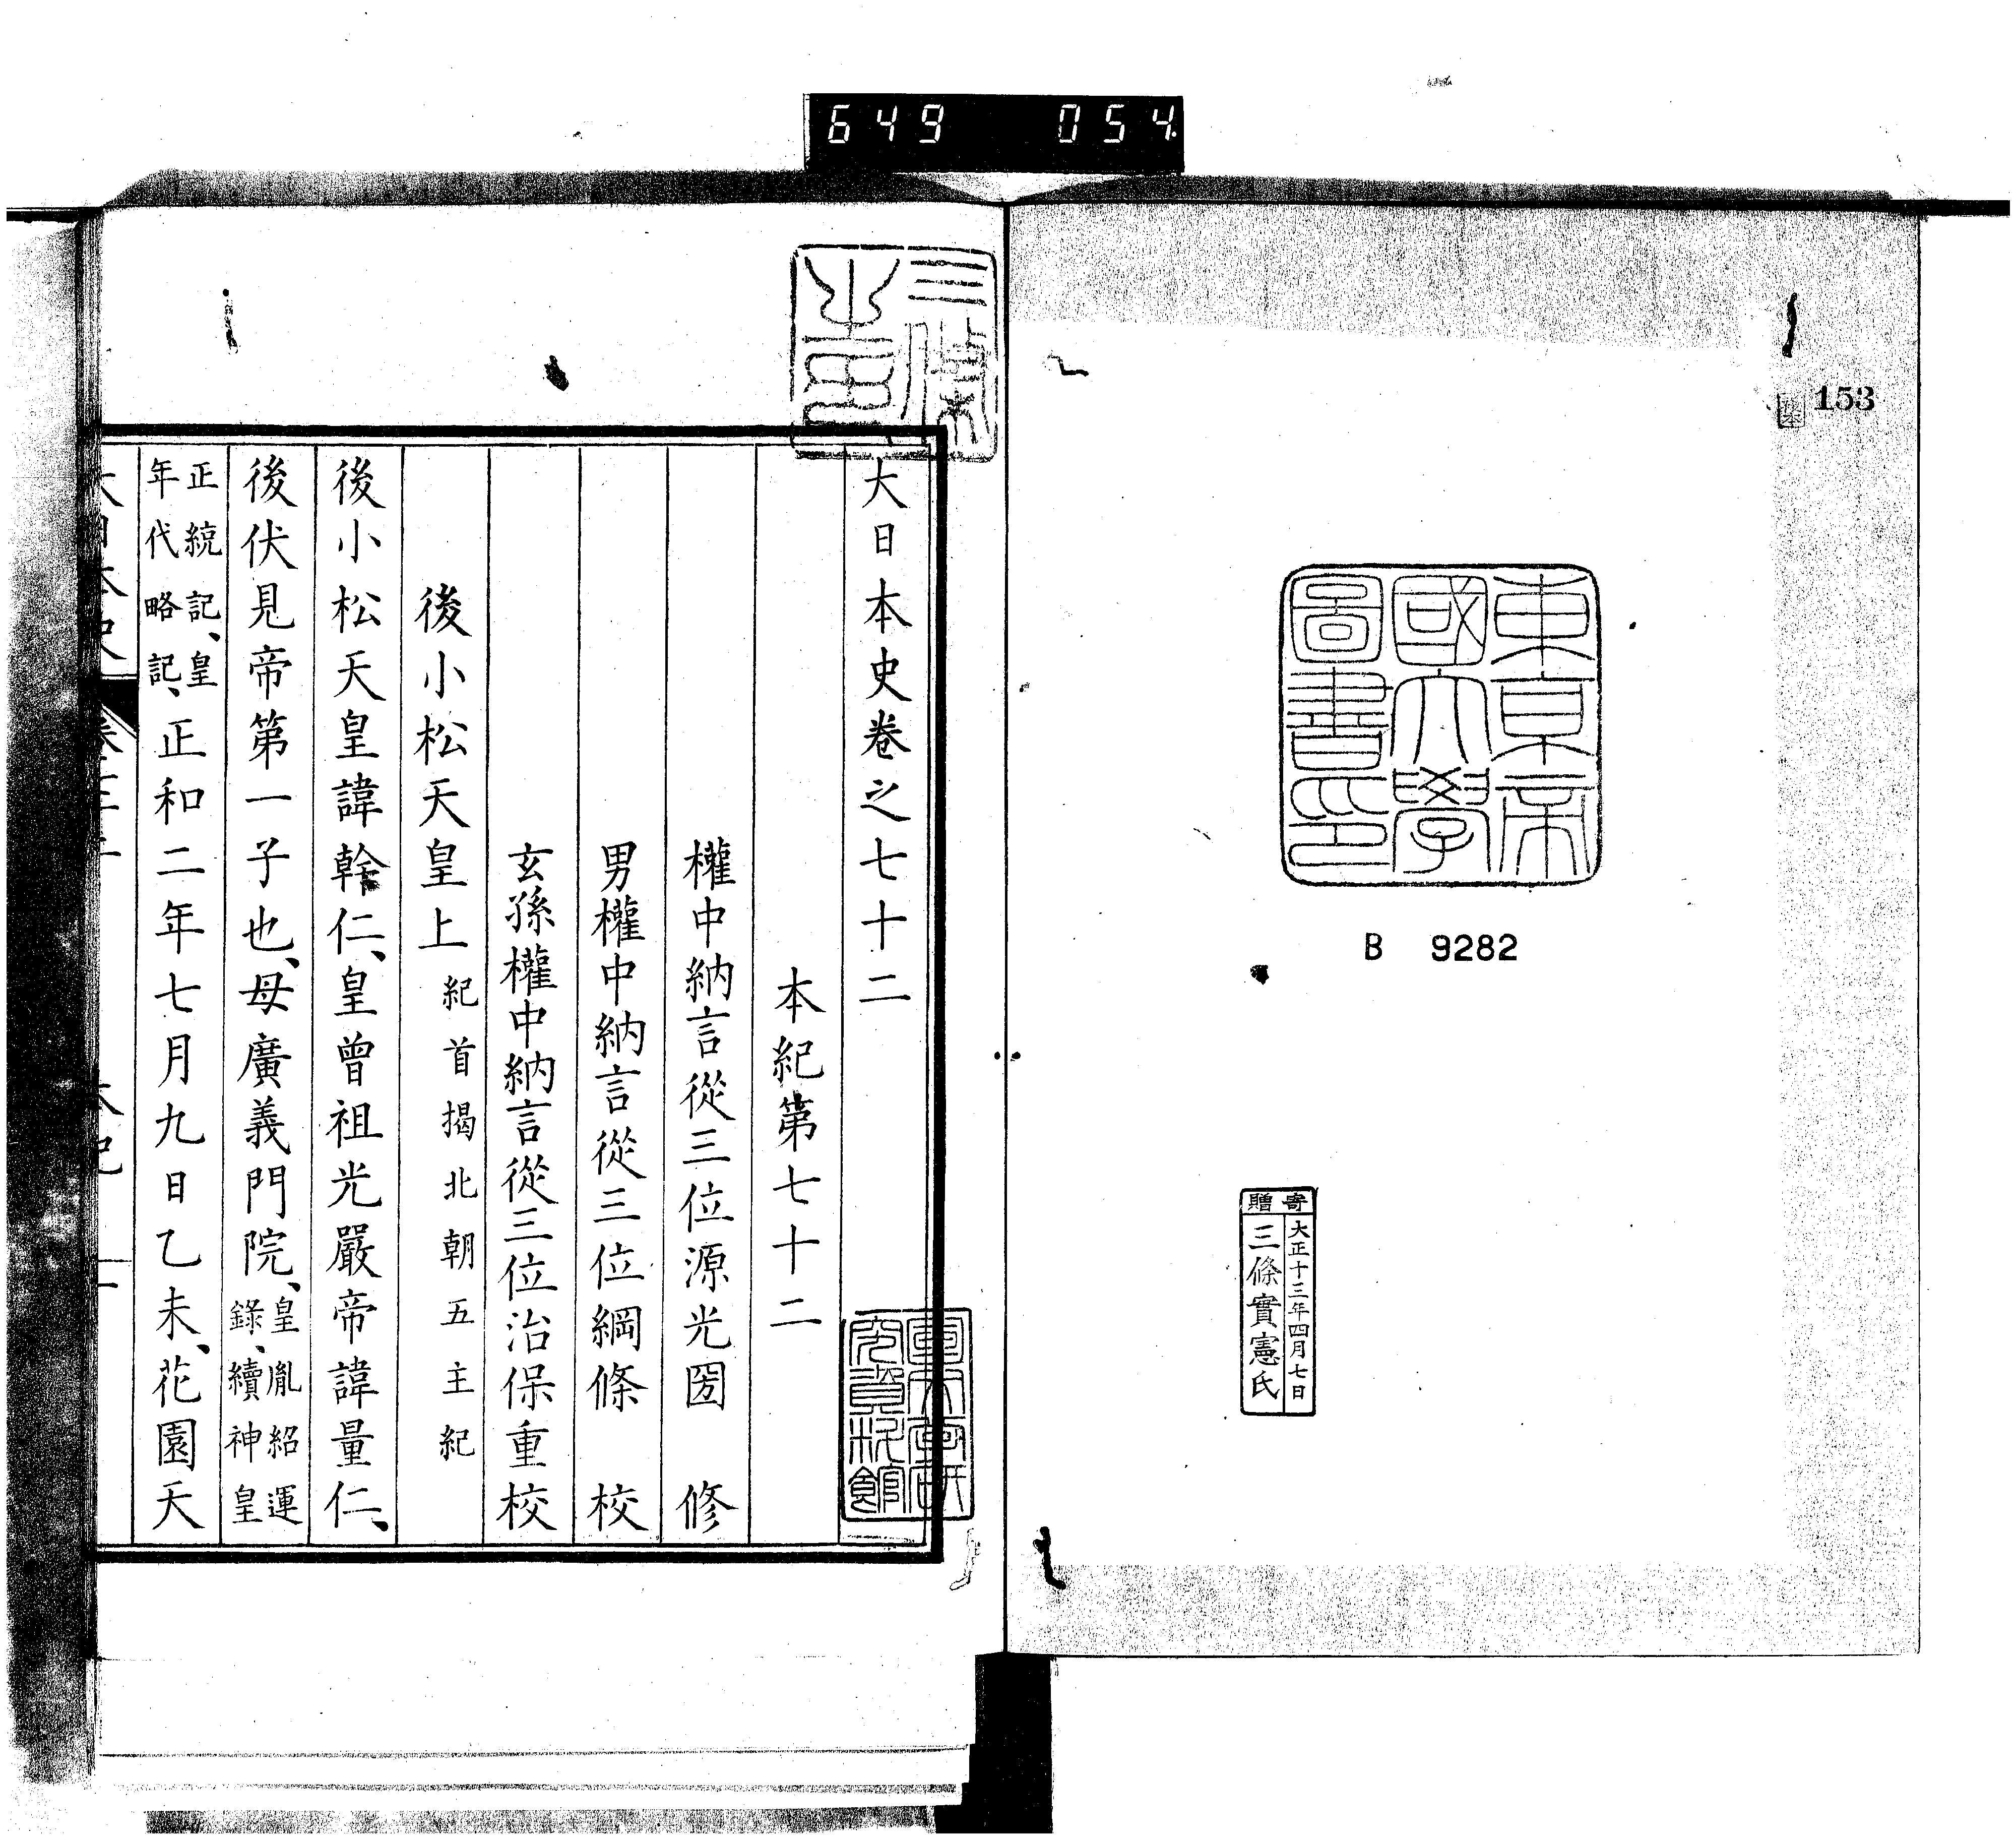 649 054
153
東京帝
國大學
圖書印
B 9282
寄贈
大正十三年四月七日
三條實憲氏
大日本史卷之七十二
本紀第七十二
權中納言從三位源光圀 修
男權中納言從三位綱條 校
玄孫權中納言從三位治保重校
後小松天皇上 紀首揭北朝五主紀
後小松天皇諱幹仁、皇曾祖光嚴帝諱量仁、
後伏見帝第一子也、母廣義門院、皇胤紹運錄、續神皇
正統記、皇年代略記、正和二年七月九日乙未、花園天